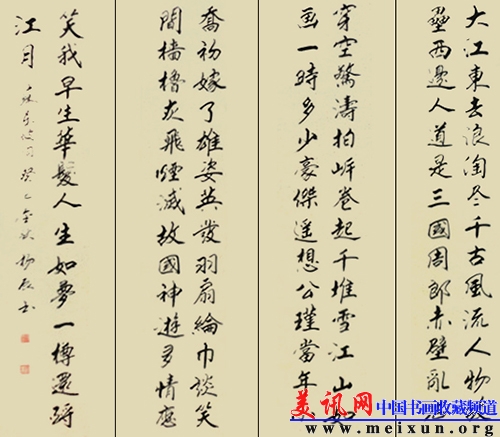 大江東去浪淘尽千古風流人物故
壘西邊人道是三國周郎赤壁亂石
穿空驚濤拍岸卷起千堆雪江山如
画一時多少豪傑遥想公瑾當年小
喬初嫁了雄姿英發羽扇綸巾談笑
間檣櫓灰飛煙滅故國神遊多情應
笑我早生華髮人生如夢一樽還酹
江月 癸巳金秋 書
美讯网 中国书画收藏频道
www.meixun.org